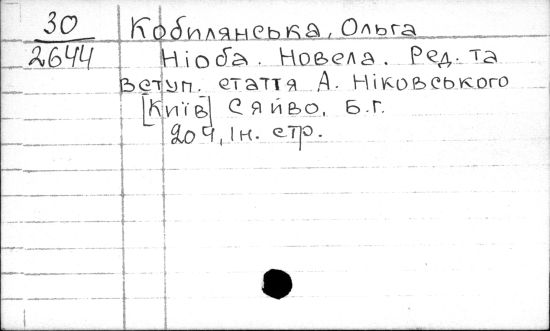 30
2644
Кобилянська, Ольга
Ніоба. Новела. Ред. та
вступ. стаття А. Ніковського
[Київ] Сяйво, Б.г.
204, Ін. стр.